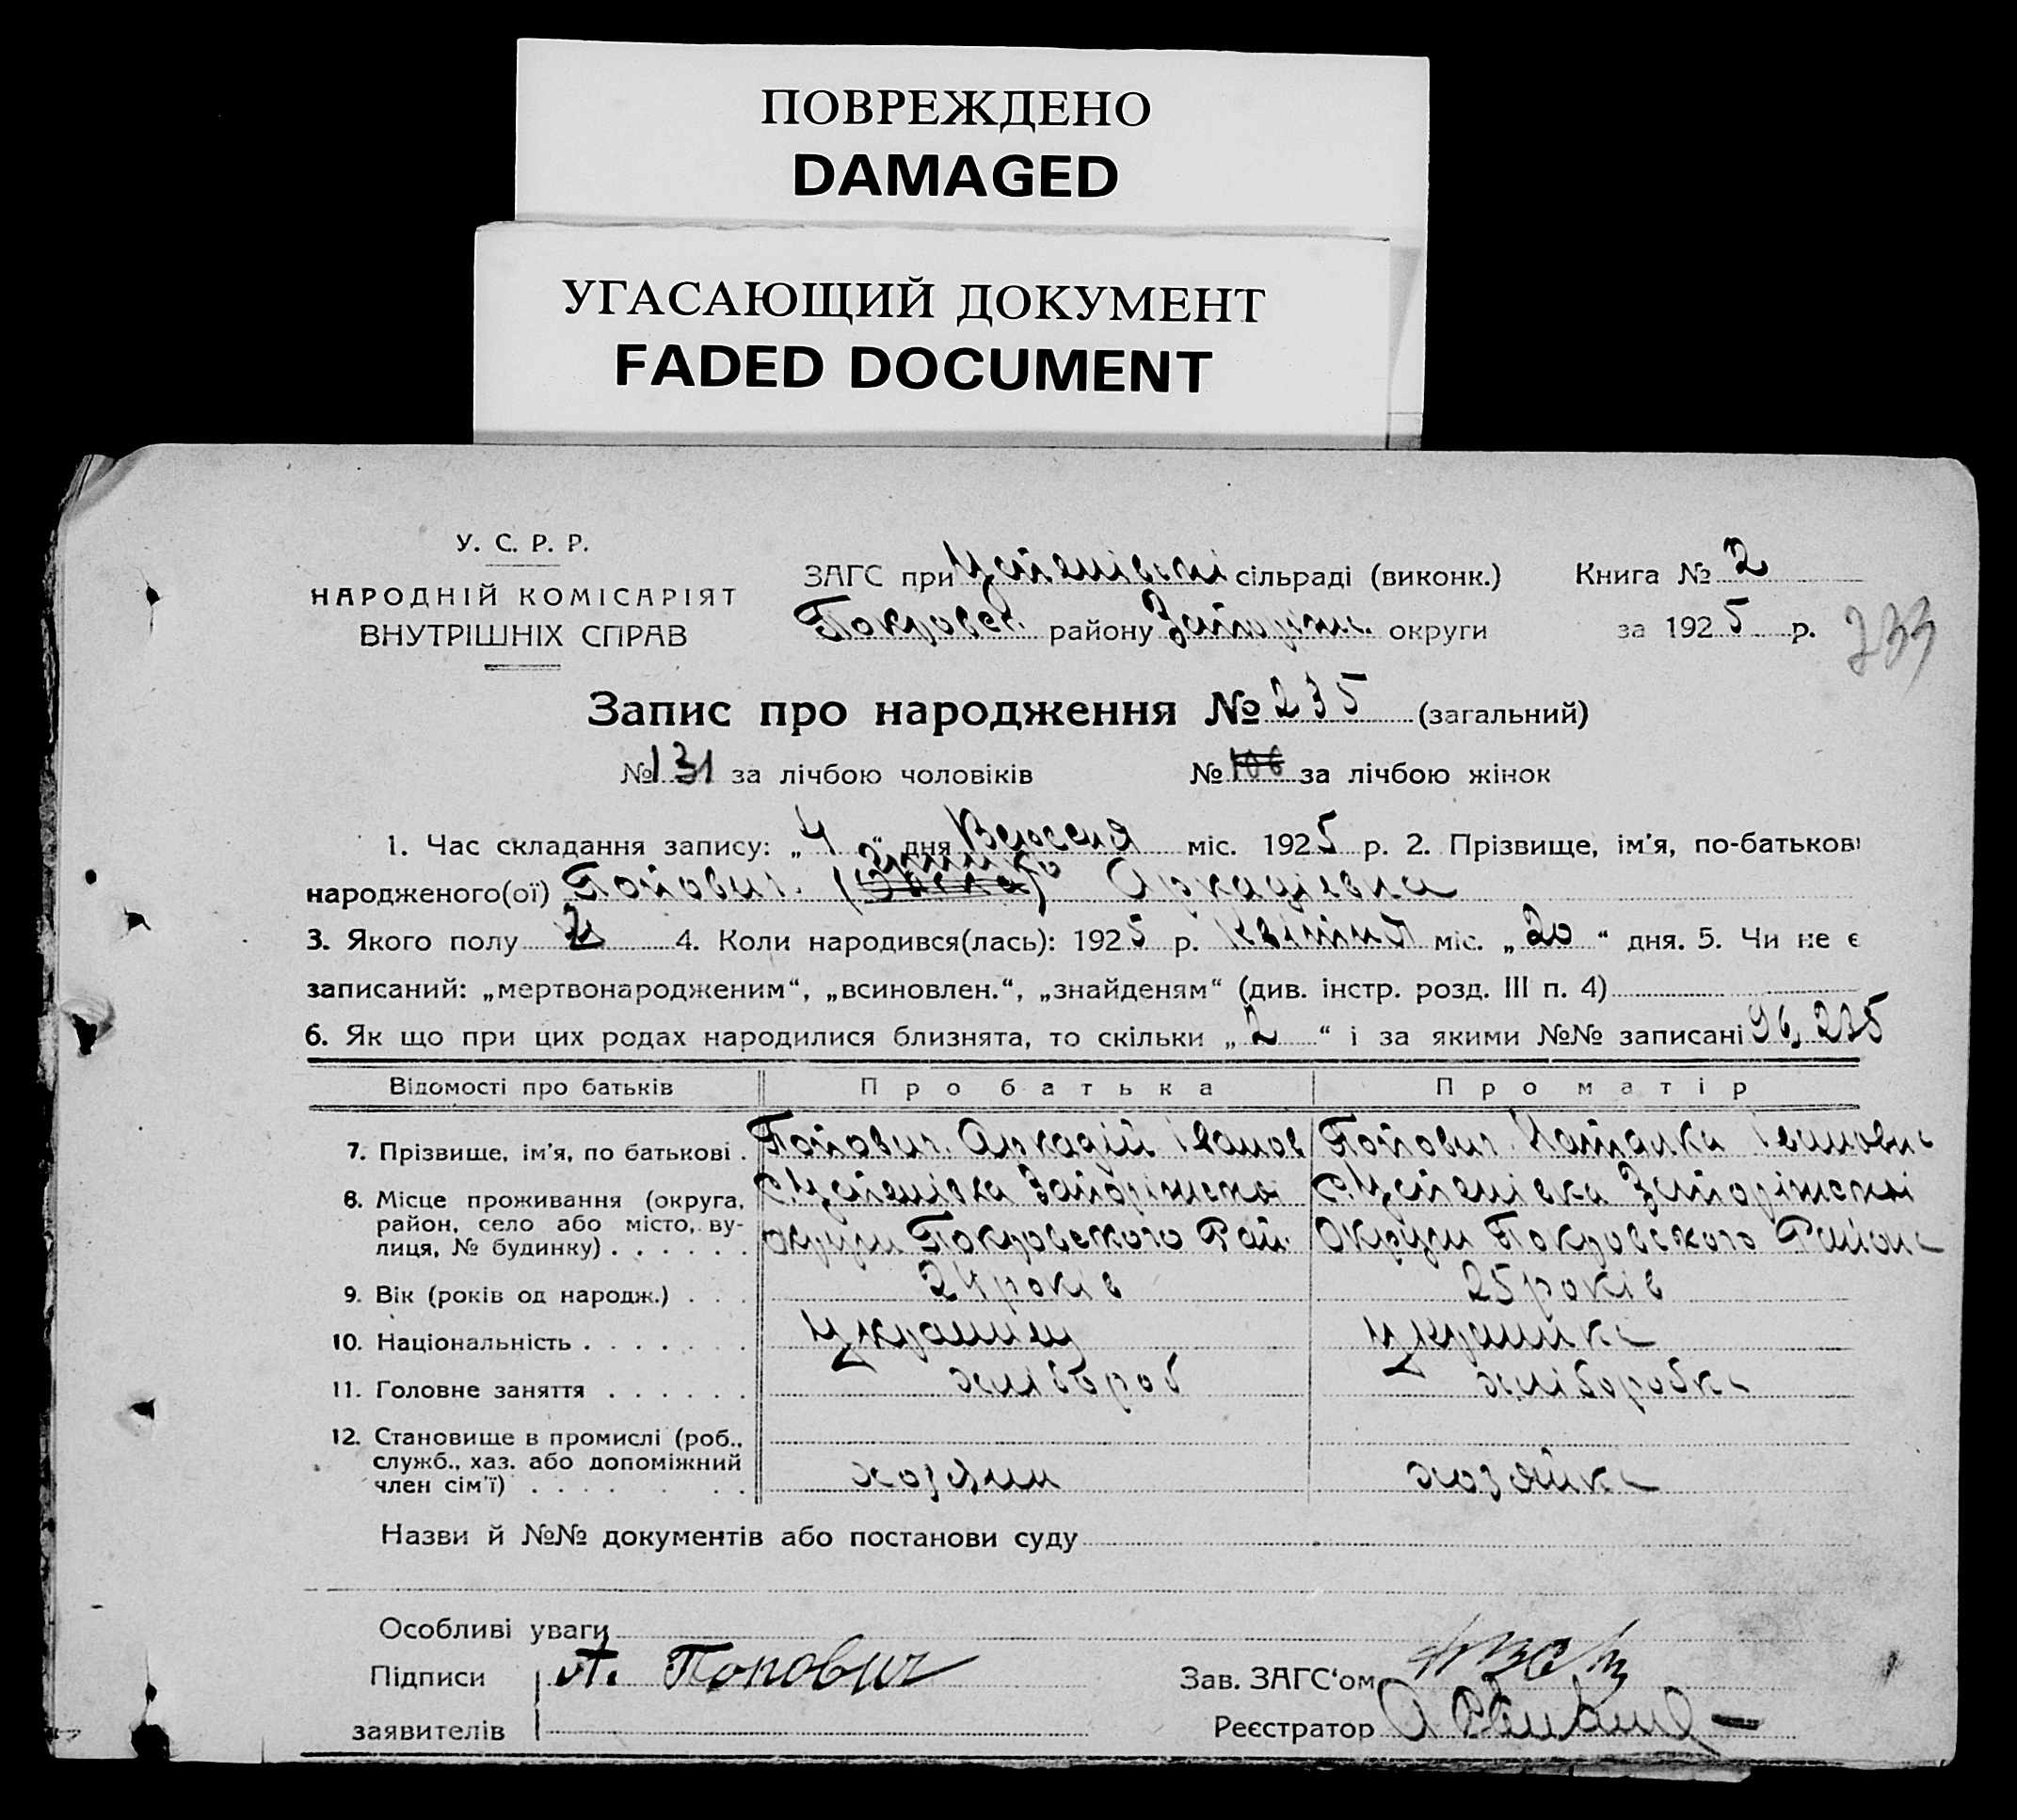 ПОВРЕЖДЕНО
DAMAGED
УГАСАЮЩИЙ ДОКУМЕНТ
FADED DOCUMENT
У. С. Р. Р.
НАРОДНІЙ КОМІСАРІЯТ
ВНУТРІШНІХ СПРАВ
ЗАГС при Успенівскі сільраді (виконк.)
Покровск. району Запоріж. округи
Книга № 2
за 1925 р.
233
Запис про народження № 235 (загальний)
№ 131 за лічбою чоловіків № 106 за лічбою жінок
1. Час складання запису: „4“ дня Вересня міс. 1925 р. 2. Прізвище, ім'я, по-батькові
народженого(ої) Попович. Аркадієвна
3. Якого полу 4. Коли народився(лась): 1925 р. Квітня міс. „20“ дня. 5. Чи не є
записаний: „мертвонародженим“, „всиновлен.“, „знайденям“ (див. інстр. розд. III п. 4)
6. Як що при цих родах народилися близнята, то скільки „2“ і за якими №№ записані 96, 235
Відомості про батьків Про батька Про матір
7. Прізвище, ім'я, по батькові . Попович. Аркадій Іванов Попович Наталка Івановна
8. Місце проживання (округа, район, село або місто, вулиця, № будинку) . . . . . .
с. Успенівка Запоріжскої
округи Покровского Рай.
с. Успенівка Запоріжскої
Округи Покровского Района
9. Вік (років од народж.) . . . 24 років 25 років
10. Національність . . . . . . . Украинц украинка
11. Головне заняття . . . . . . хлібороб хлібороб­ка
12. Становище в промислі (роб.,
служб., хаз. або допоміжний
член сім'ї) . . . . . . . хозяин хозяйка
Назви й №№ документів або постанови суду
Особливі уваги
Підписи А. Попович
заявителів
Зав. ЗАГС'ом
Реєстратор